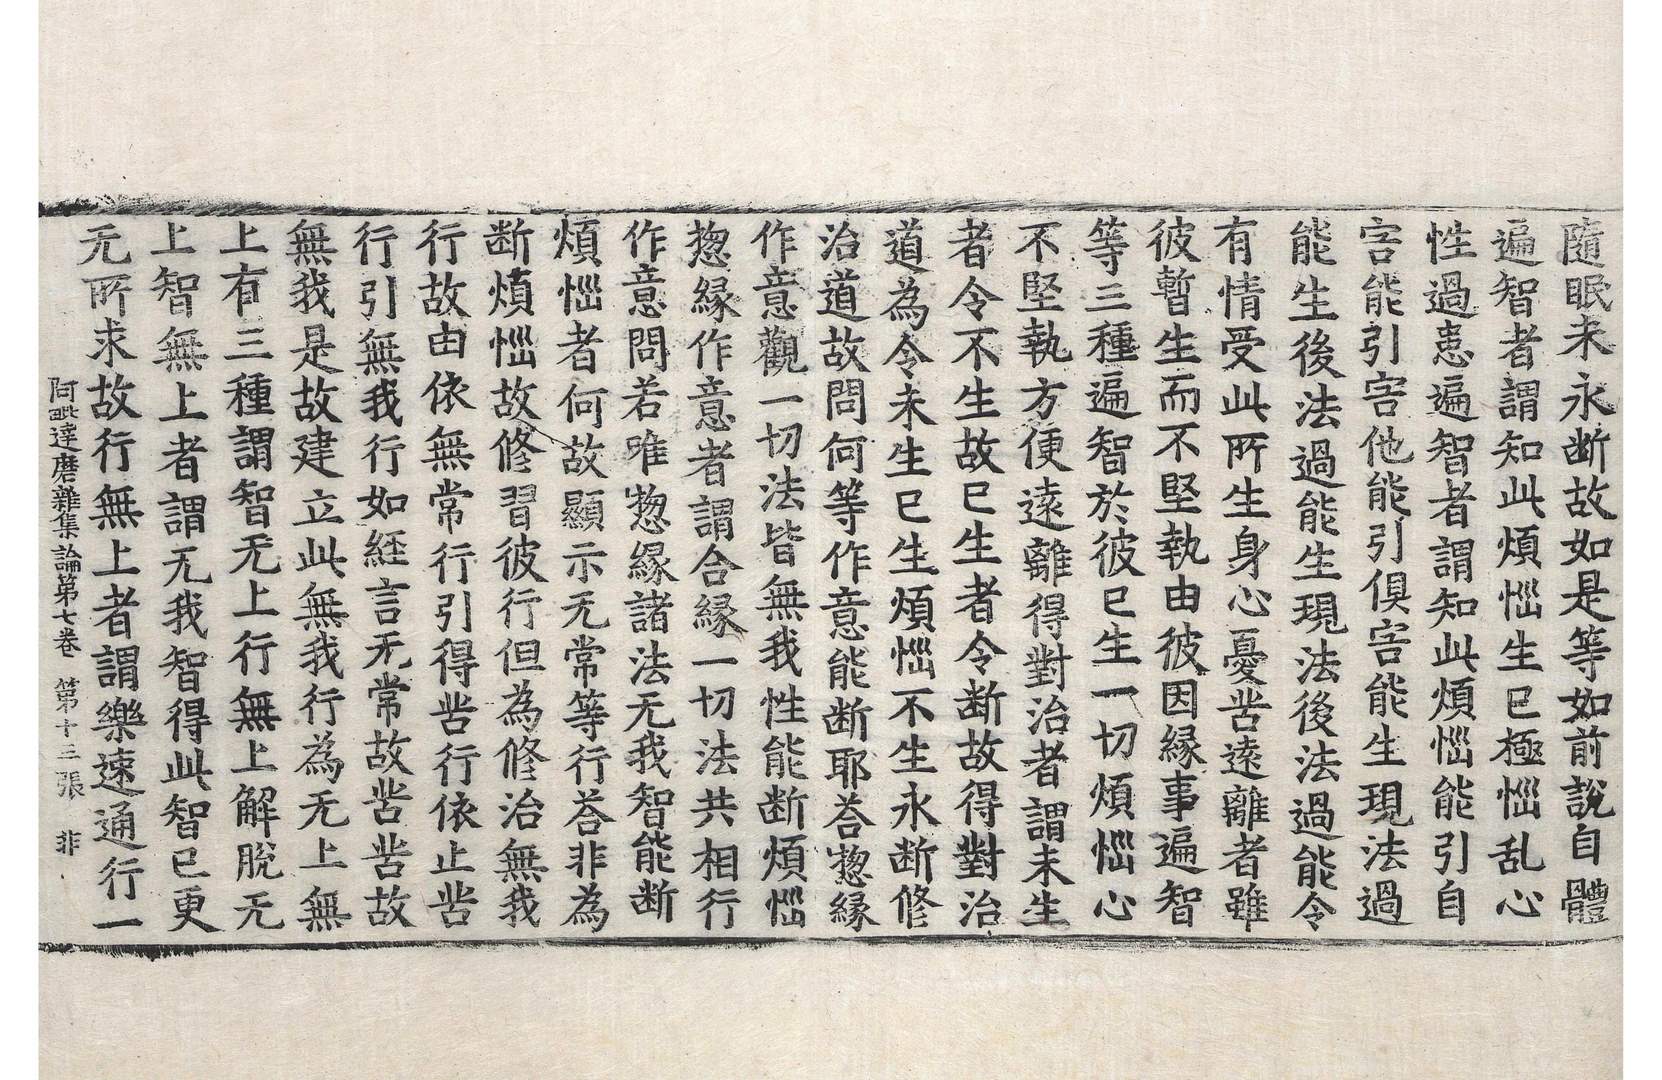 隨眠未永断故如是等如前說自體
遍智者謂知此煩惱生已極惱乱心
性過患遍智者謂知此煩惱能引自
害能引害他能引俱害能生現法過
能生後法過能生現法後法過能令
有情受此所生身心憂苦遠離者雖
彼暫生而不堅執由彼因緣事遍智
等三種遍智於彼已生一切煩惱心
不堅執方便遠離得對治者謂未生
者令不生故已生者令断故得對治
道為令未生已生煩惱不生永断修
治道故問何等作意能断耶荅惣緣
作意觀一切法皆無我性能断煩惱
惣緣作意者謂合緣一切法共相行
作意問若唯惣緣諸法无我智能断
煩惱者何故顯示无常等行荅非為
断煩惱故修習彼行但為修治無我
行故由依無常行引得苦行依止苦
行引無我行如經言无常故苦苦故
無我是故建立此無我行為无上無
上有三種謂智无上行無上解脫无
上智無上者謂无我智得此智已更
无所求故行無上者謂樂速通行一
阿毗達磨雜集論第七卷　第十三張　非